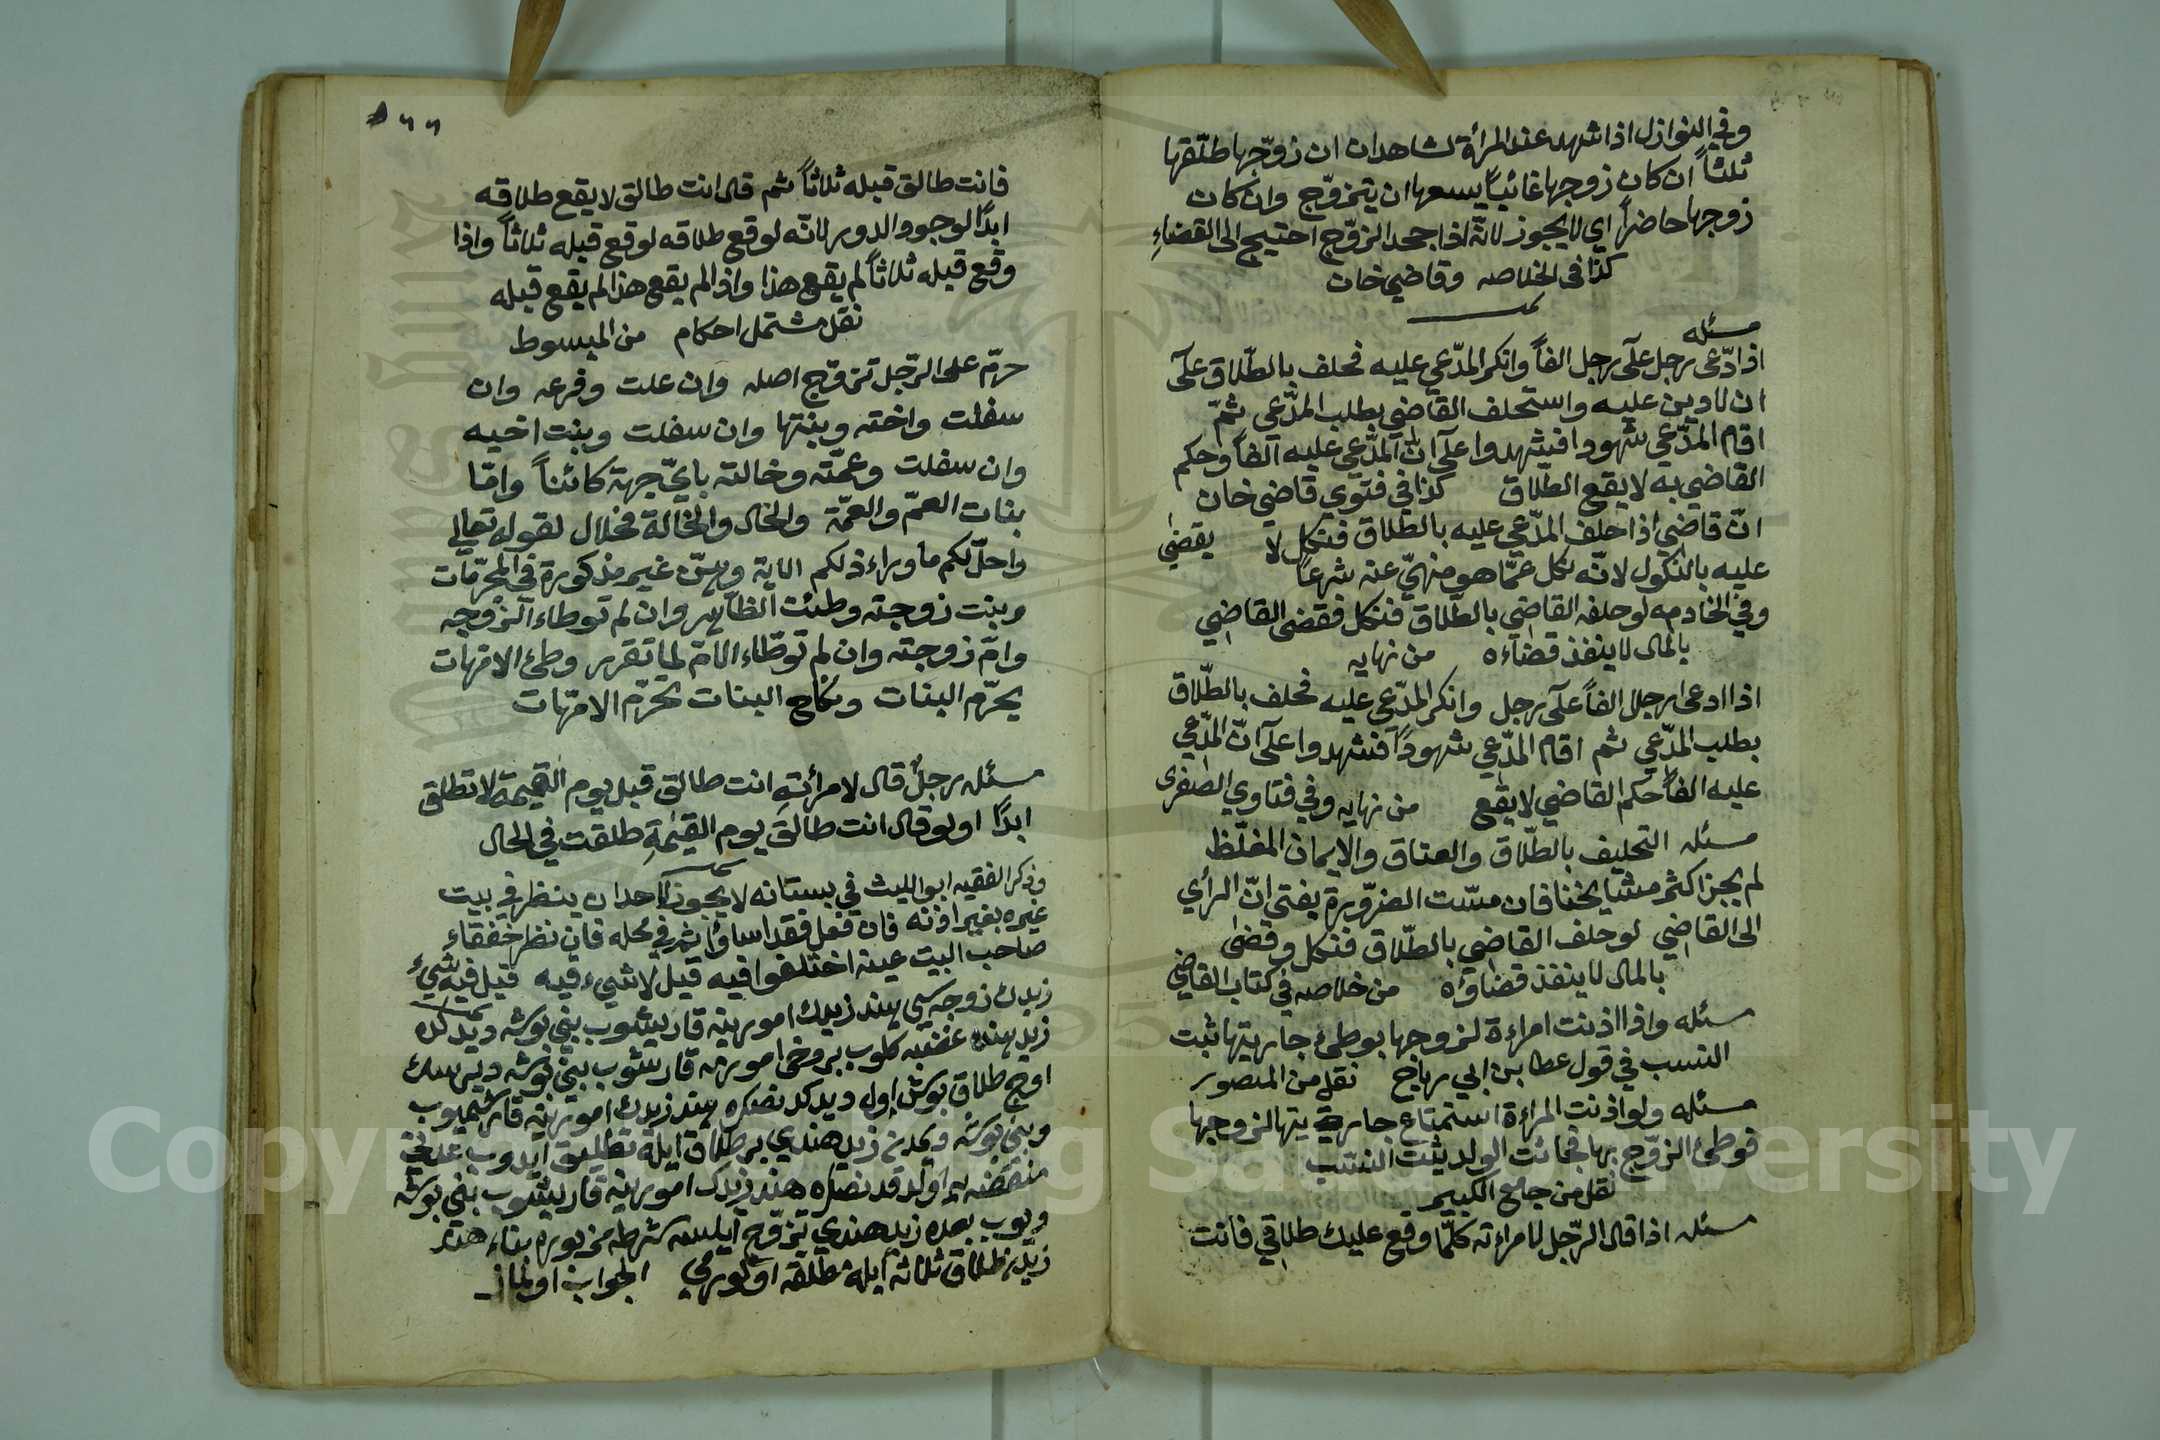 وفي النوازل اذا شهد عند المرأة شاهدان ان زوّجها طلّقها
ثلثاً ان كان زوجها غائباً يسعها ان يتزوّج وان كان
زوجها حاضراً اي لا يجوز لانّه اذا جحد الزوّج احتيج الى القضاءِ
كذا فى الخلاصه وقاضي خان
مسئله
اذا ادّعى رجل على رجل الفاً وانكر المدّعي عليه فحلف بالطّلاق على
ان لا دين عليه واستحلف القاضي بطلب المدّعي ثمّ
اقام المدّعي شهودا فشهدوا على انّ المدّعي عليه الفاً وحكم
القاضي به لا يقع الطّلاق كذا في فتوى قاضي خان
انّ قاضي اذا حلف المدّعي عليه بالطلاق فنكل لا يقضي
عليه بالنكول لانّه نكل عمّا هو منهيّ عنه شرعاً
وفي الخادمه لو حلفه القاضي بالطّلاق فنكل فقضى القاضي
بالمال لا ينفذ قضاءه من نهايه
اذا ادعى رجل الفاً على رجل وانكر المدّعي عليه فحلف بالطّلاق
بطلب المدّعي ثم اقام المدّعي شهوداً فشهدوا على انّ المدّعي
عليه الفاً حكم القاضي لا يقع من نهايه وفي فتاوي الصغرى
مسئله التحليف بالطّلاق والعتاق والايمان المغلّظ
لم يجز اكثر مشايخنا فان مسّت الضرّورة يفتي انّ الرأي
الى القاضي لو حلف القاضي بالطّلاق فنكل وقضى
بالمال لا ينفذ قضاؤه من خلاصه في كتاب القاضي
مسئله واذا اذنت امراءة لزوجها بوطئ جاريتها ثبت
النسب في قول عطا بن ابي رباح نقل من المنصور
مسئله ولو اذنت المراءة استمتاع جاريتها لزوجها
فوطئ الزوّج بها فجائت الولد يثبت النسب
نقل من جامع الكبير
مسئله اذا قال الرّجل لامراءته كلّما وقع عليك طلاقي فانت
فانت طالق قبله ثلاثاً ثم قال انت طالق لا يقع طلاقه
ابداً لوجود الدور لانّه لو وقع طلاقه لوقع قبله ثلاثاً واذا
وقع قبله ثلاثاً لم يقع هذا واذا لم يقع هذا لم يقع قبله
نقل مشتمل احكام من المبسوط
حرّم على الرّجل تزوّج اصله وان علت وفرعه وان
سفلت واخته وبنتها وان سفلت وبنت اخيه
وان سفلت وعمّته وخالته بايّ جهة كائناً وامّا
بنات العمّ والعمّة والخال والخالة فحلال لقوله تعالى
واحلّ لكم ما وراء ذلكم الاية وهنّ غير مذكورة في المحرّمات
وبنت زوجته وطئت الظاهر وان لم توطاء الزوجه
وامّ زوجته وان لم توطّاء الامّ لما تقرر وطئ الامّهات
يحرّم البنات ونكاح البنات تحرّم الامّهات
مسئله رجلٌ قال لامرأته انت طالق قبل يوم القيمة لا تطلق
ابداً او لو قال انت طالق يوم القيمة طلقت في الحال
وذكر الفقيه ابو الليث في بستانه لا يجوز لاحد ان ينظر في بيت
غيره بغير اذنه فان فعل فقد اساؤا ثم في محله فان نظر ففقاء
صاحب البيت عينه اختلفوا فيه قيل لا شيء فيه قيل فيه شيء
زيدك زوجه سى هند زيدك اموزينه قاريشوب بني بوشه ديدكده
زيد هنده غضبه كلوب بر دخى اموزمه قارشوب بني بوشه ديرسك
اوچ طلاق بوش اول ديدكدنصكره هند زيدك اموزينه قارشميوب
وبني بوشه ديمدن زيد هندي بر طلاق ايله تطليق ايدوب عدتي
منقضيه اولدقدنصكره هند زيدك اموزينه قاريشوب بني بوشه
ديوب بعده زيد هندي تزوّج ايلسه شرط مزبوره بناء هند
زيددن طلاق ثلاثه ايله مطلقه اولورمى الجواب اولماز